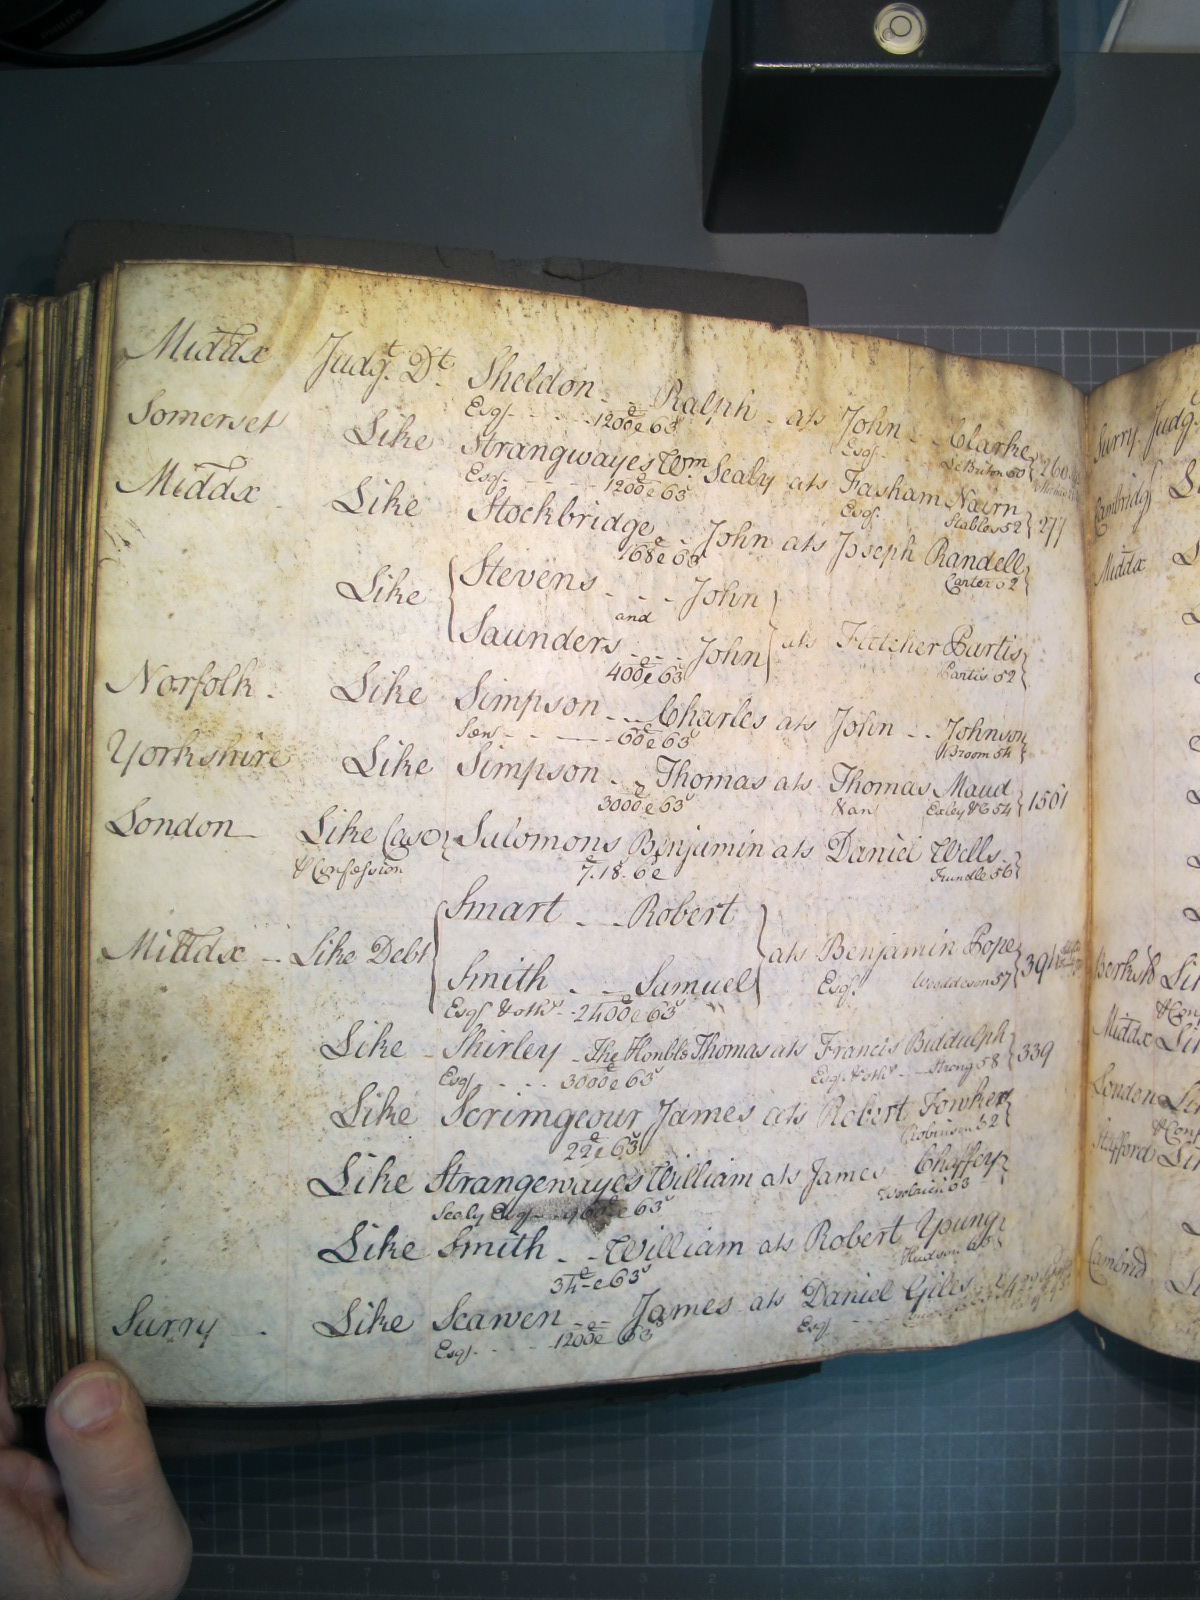 PHILIPS
Middx Judgt. Dt. Sheldon - - Ralph - ats John - Clarke
Esqr. - - - 1200e 63s Esqr. 260
Somerset Like Strangwayes Wm Sealy ats Fasham Nairn
Esqr. - - - 1200e 63s Esqr. Stables 52 277
Middx Like Stockbridge John ats Joseph Randell
168e 63s Carter 52
Like Stevens - - - John
and
Saunders - - - John ats Fletcher Partis
400e 63s Partis 52
Norfolk. Like Simpson - - Charles ats John - - Johnson
Sen - - - 60e 63s Broom 54
Yorkshire Like Simpson - - Thomas ats Thomas Maud
3000e 63s Exley & C 54 1501
London Like Case Salomons Benjamin ats Daniel Wells
& Confession 7.18.6e Frundle 56
Smart - - Robert
Middx - Like Debt ats Benjamin Pope
Smith - - Samuel Esqr. Wooddeson 57 391
Esqr. & othr - 2400e 63s
Like Shirley - The Honble Thomas ats Francis Biddulph
Esqr. - - - 3000e 63s Esqr. & othr - - Strong 58 339
Like Scrimgeour James ats Robert Fowkes
22e 63s Robinson 52
Like Strangewayes William ats James Chaffey
Sealy Esqr. 63s 63
Like Smith - - William ats Robert Young
34e 63s Hudson
Surry - Like Scawen - - James ats Daniel Giles
Esqr. - - - 1200e 63s Esqr.
Surry Judg.
Cambridgs
Middx
Berksh
Middx
London
Stafford
Cambrid